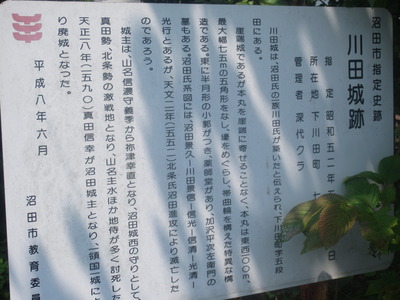 沼田市指定史跡
川田城跡
指定 昭和五二年
所在地 下川田町
管理者 深代クラ
川田城は、沼田氏の一族川田氏が築いたと伝えられ、下川田町字五段
田にある。
崖端城であるが本丸を崖端に寄せることなく、本丸は東西一〇〇m、
最大幅七五mの五角形をなし、壕をめぐらし、帯曲輪を構えた特異な構
造である。東に半月形の小郭がつき、薬師堂があり、加沢平次左衛門の
墓もある。沼田氏系図には、沼田景久―川田景信―信光―信清―光清―
光行とあるが、天文二一年(一五五二)北条氏沼田進攻により滅亡した
のであろう。
城主は、山名信濃守義季から祢津幸直となり、沼田城西の守りとして
真田勢、北条勢の激戦地となり、山名主水ほか地侍が多く討死した
天正一八年(一五九〇)真田信幸が沼田城主となり、一領国一城によ
り廃城となった。
平成八年六月
沼田市教育委員